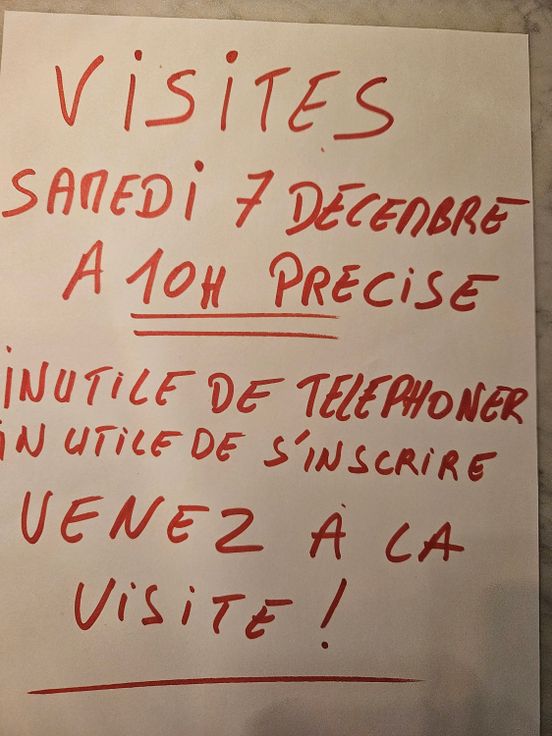 VISITES
SAMEDI 7 DÉCEMBRE
A 10H PRECISE
INUTILE DE TELEPHONER
INUTILE DE S'INSCRIRE
VENEZ À LA
VISITE !